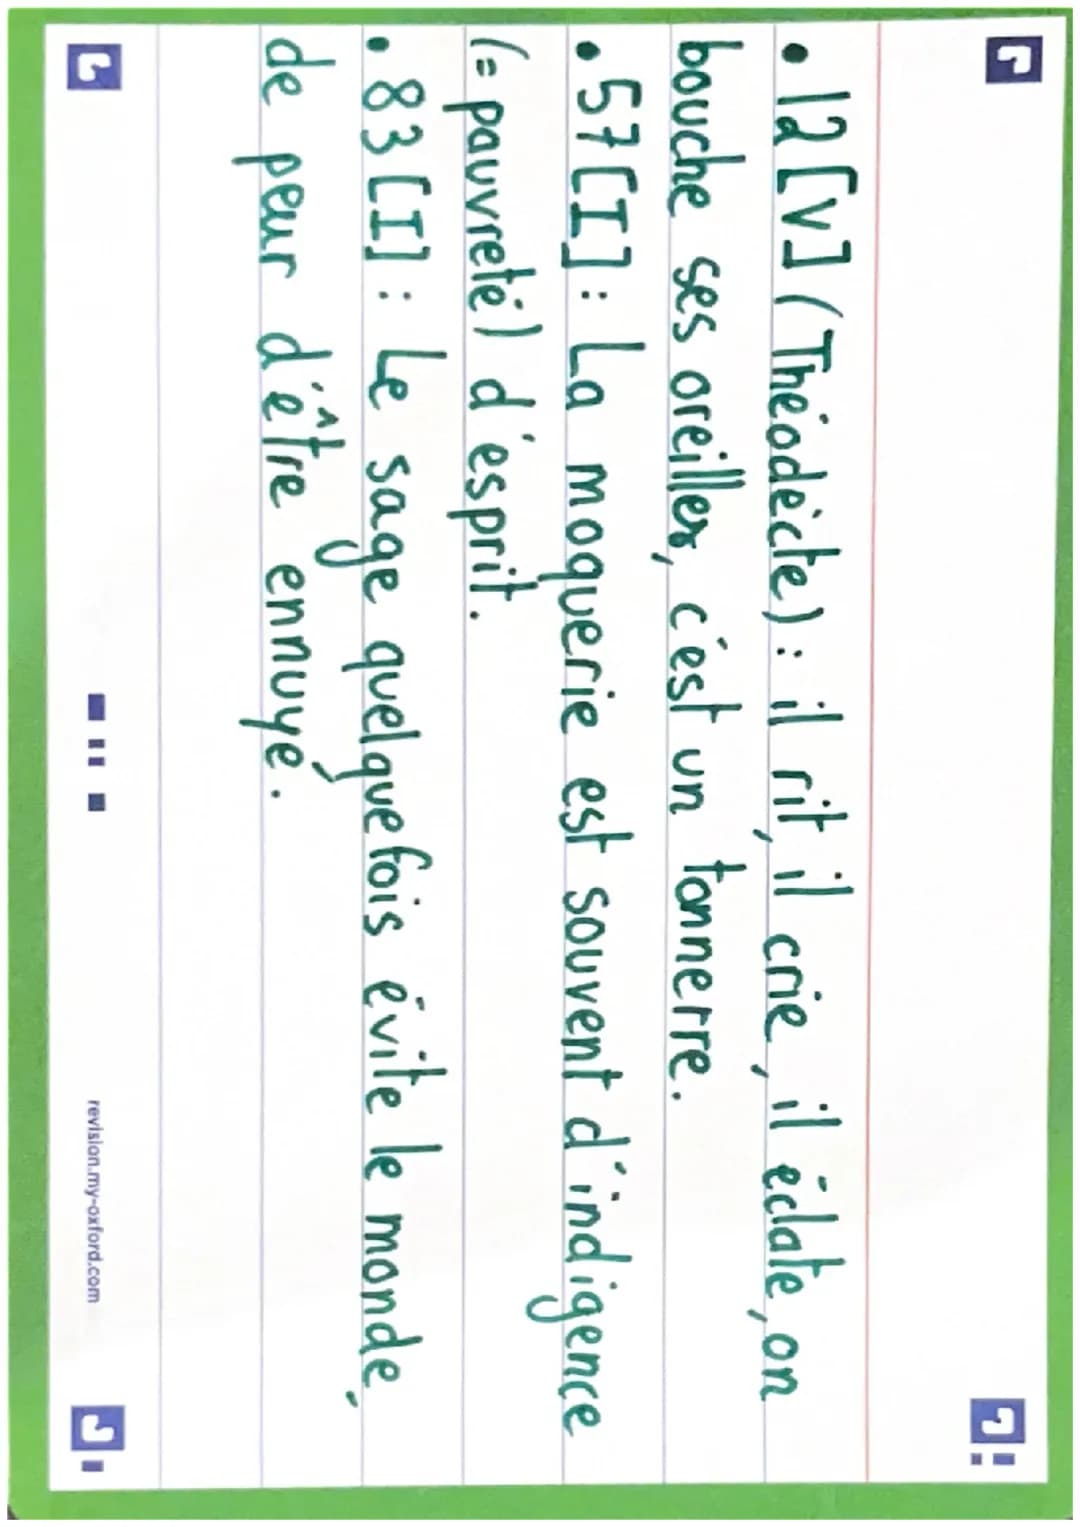 • 12 [V] (Théodècte) : il rit, il crie, il éclate, on
bouche ses oreilles, c'est un tonnerre.
• 57 [I] : La moquerie est souvent d'indigence
(= pauvreté) d'esprit.
• 83 [I] : Le sage quelquefois évite le monde,
de peur d'être ennuyé.
revision.my-oxford.com